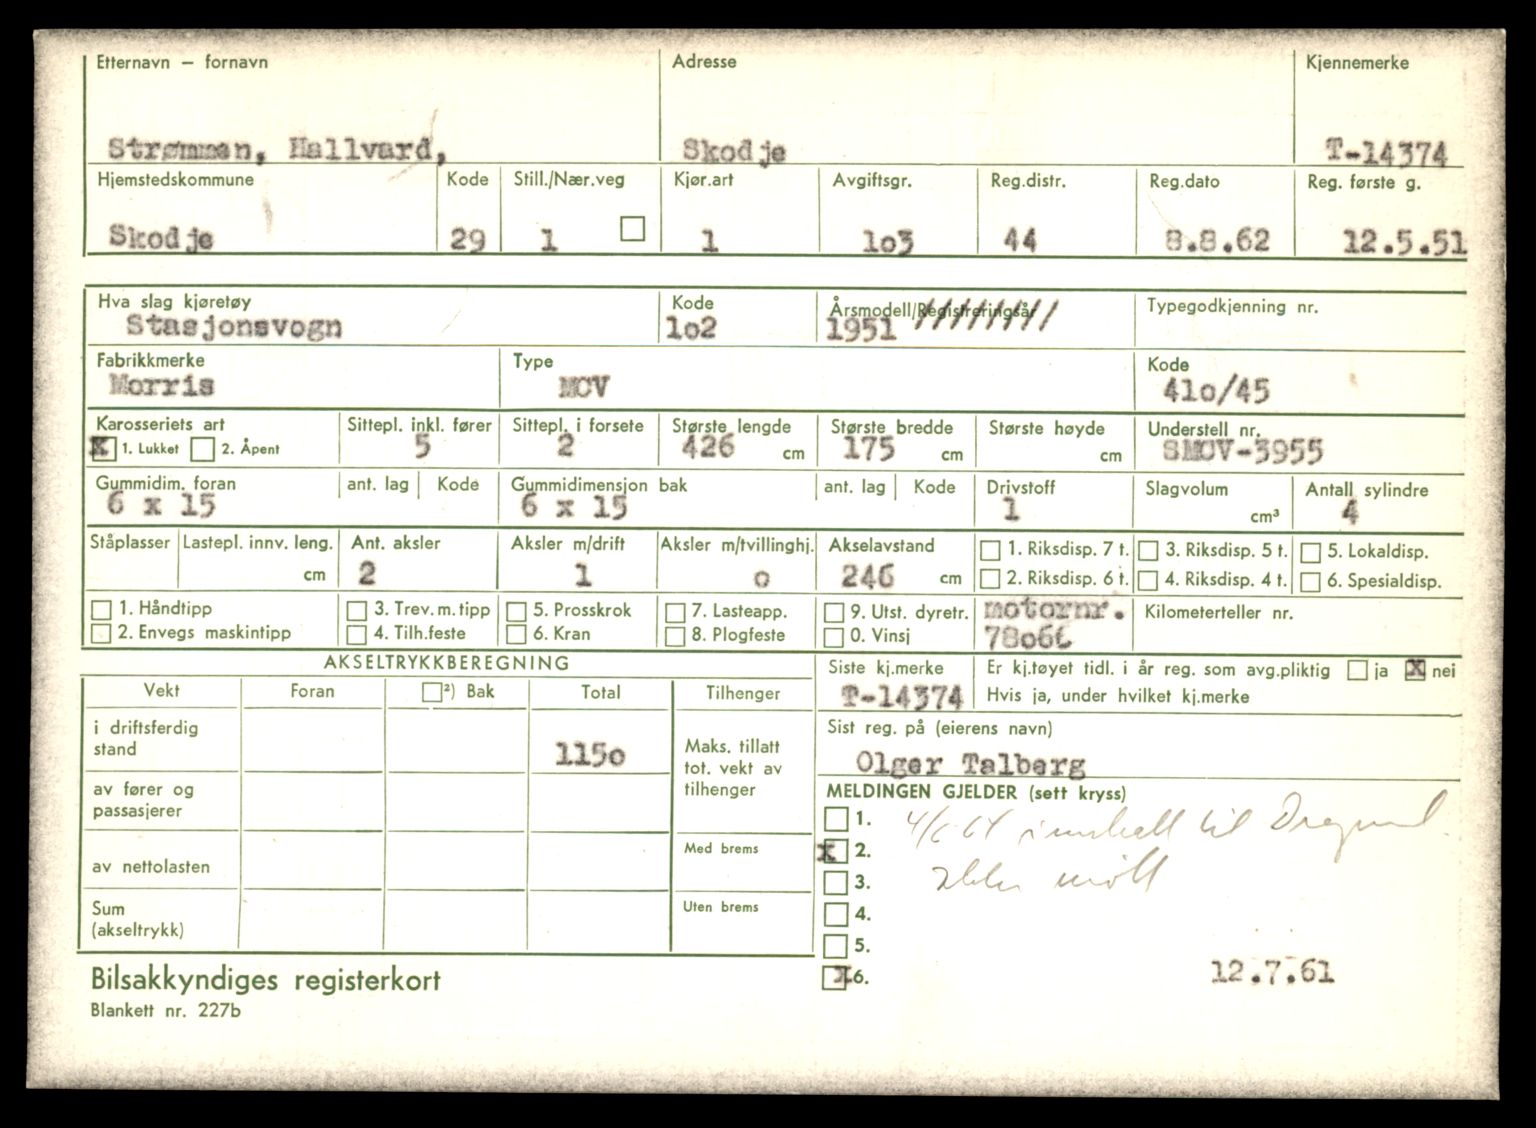 Etternavn – fornavn Adresse Kjennemerke
Strømmen, Hallvard, Skodje T-14374
Hjemstedskommune Kode Still./Nær.veg Kjør.art Avgiftsgr. Reg.distr. Reg.dato Reg. første g.
Skodje 29 1 1 1o3 44 8.8.62 12.5.51
Hva slag kjøretøy Kode Årsmodell/Registreringsår Typegodkjenning nr.
Stasjonsvogn 1o2 1951
Fabrikkmerke Type Kode
Morris MCV 41o/45
Karosseriets art Sittepl. inkl. fører Sittepl. i forsete Største lengde Største bredde Største høyde Understell nr.
X 1. Lukket 2. Åpent 5 2 426 cm 175 cm cm SMCV-3955
Gummidim. foran ant. lag Kode Gummidimensjon bak ant. lag Kode Drivstoff Slagvolum Antall sylindre
6 x 15 6 x 15 1 cm³ 4
Ståplasser Lastepl. innv. leng. Ant. aksler Aksler m/drift Aksler m/tvillinghj. Akselavstand 1. Riksdisp. 7 t. 3. Riksdisp. 5 t. 5. Lokaldisp.
cm 2 1 o 246 cm 2. Riksdisp. 6 t. 4. Riksdisp. 4 t. 6. Spesialdisp.
1. Håndtipp 3. Trev. m. tipp 5. Prosskrok 7. Lasteapp. 9. Utst. dyretr. motornr. Kilometerteller nr.
2. Envegs maskintipp 4. Tilh.feste 6. Kran 8. Plogfeste 0. Vinsj 78o66
AKSELTRYKKBEREGNING Siste kj.merke Er kj.tøyet tidl. i år reg. som avg.pliktig ja X nei
Vekt Foran ²) Bak Total Tilhenger T-14374 Hvis ja, under hvilket kj.merke
i driftsferdig stand 115o Maks. tillatt tot. vekt av tilhenger
Sist reg. på (eierens navn)
Olger Talberg
av fører og passasjerer
MELDINGEN GJELDER (sett kryss)
1. 4/6 64 innkalt til
Med brems x 2.
av nettolasten 3. Ikke møtt
Sum (akseltrykk) Uten brems 4.
5.
Bilsakkyndiges registerkort X 6. 12.7.61
Blankett nr. 227b